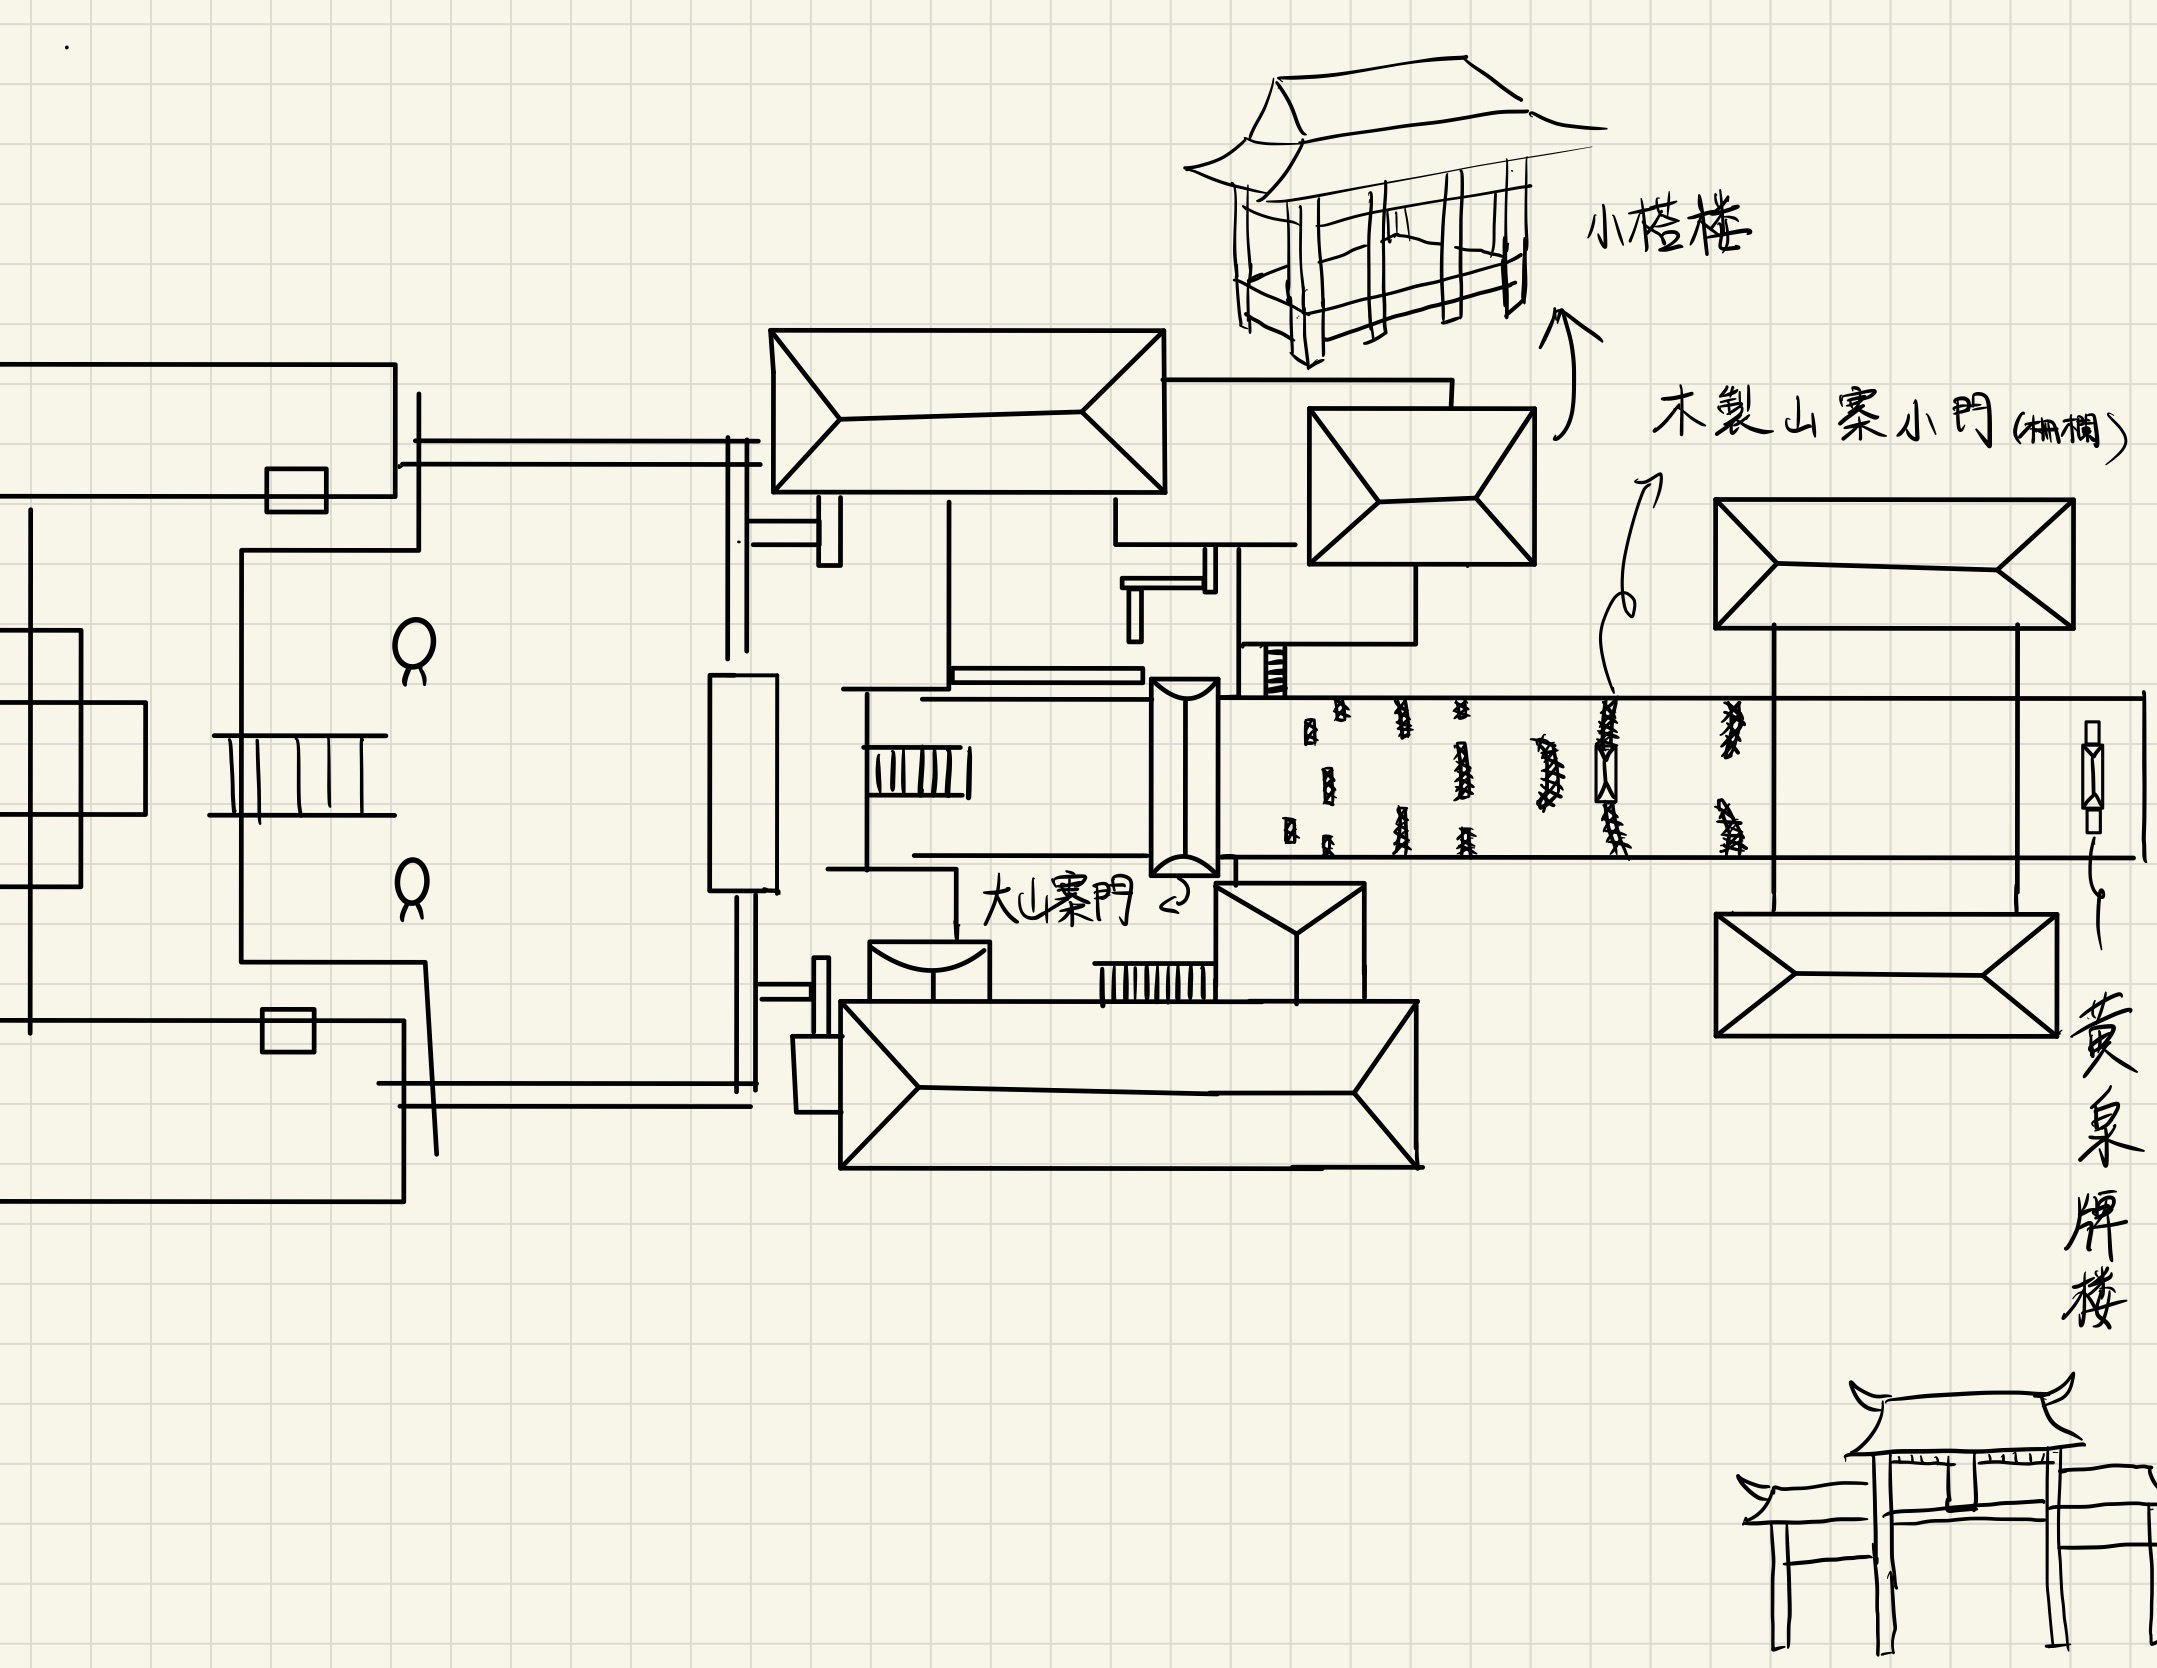 小塔楼
木製山寨小門(柵欄)
大山寨門
黄泉牌楼